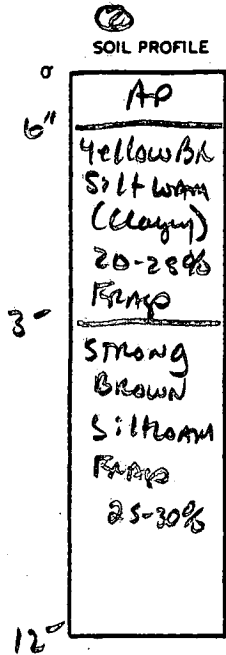 SOIL PROFILE
0'
AP
6"
Yellow BR
Silt Loam
(Clayey)
20-25%
Frags
3'
STRONG
BROWN
Silt Loam
Frags
25-30%
12'